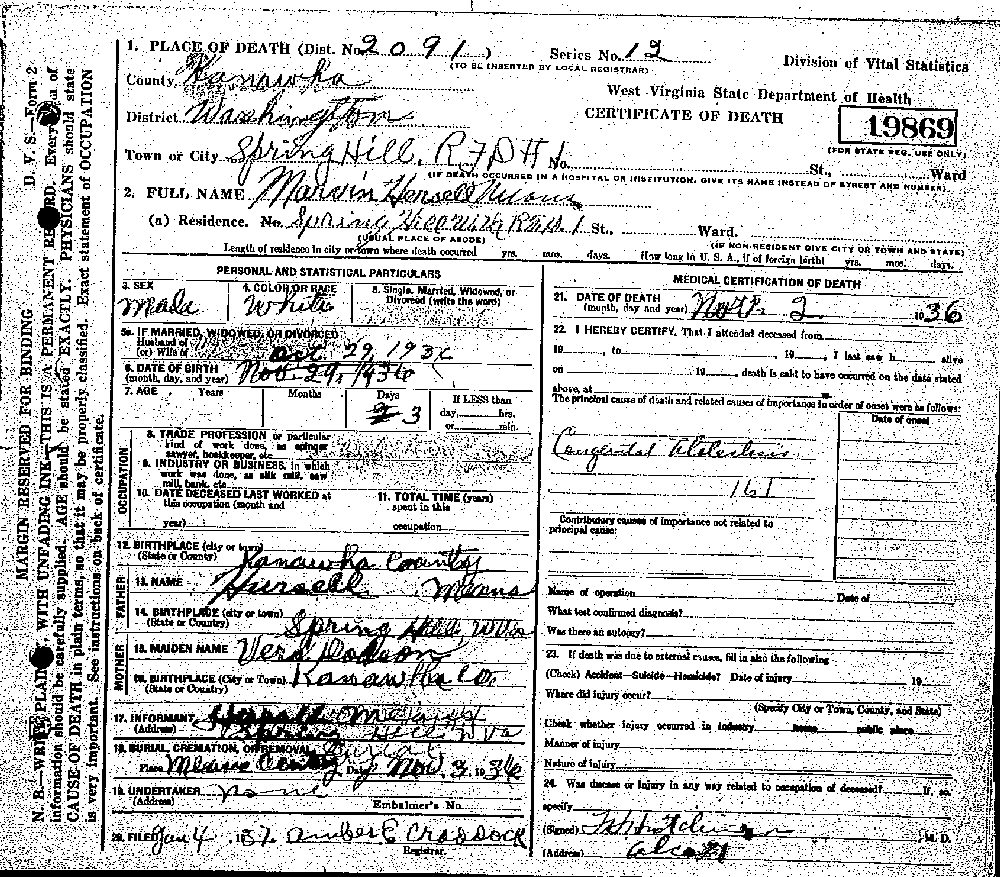 1. PLACE OF DEATH (Dist. No. 2091)
Series No. 12
(TO BE INSERTED BY LOCAL REGISTRAR)
Division of Vital Statistics
County Kanawha
West Virginia State Department of Health
CERTIFICATE OF DEATH
19869
(FOR STATE REG. USE ONLY)
District Washington
Town or City Spring Hill, RFD # 1 No. St., Ward
(IF DEATH OCCURRED IN A HOSPITAL OR INSTITUTION, GIVE ITS NAME INSTEAD OF STREET AND NUMBER)
2. FULL NAME Marvin Hensell Means
(a) Residence. No. Spring Hill St., Ward.
(USUAL PLACE OF ABODE)
(IF NON-RESIDENT GIVE CITY OR TOWN AND STATE)
Length of residence in city or town where death occurred yrs. mos. days. How long in U. S. A., if of foreign birth? yrs. mos. days.
PERSONAL AND STATISTICAL PARTICULARS
3. SEX
Male
4. COLOR OR RACE
White
5. Single, Married, Widowed, or Divorced (write the word)
5a. IF MARRIED, WIDOWED, OR DIVORCED
Husband of
(or) Wife of
Oct. 29, 1936
6. DATE OF BIRTH
(month, day, and year) Nov. 29, 1936
7. AGE Years Months Days If LESS than
3 day, hrs.
or min.
OCCUPATION
8. TRADE PROFESSION or particular
kind of work done, as spinner
sawyer, bookkeeper, etc.
9. INDUSTRY OR BUSINESS, in which
work was done, as silk mill, saw
mill, bank, etc.
10. DATE DECEASED LAST WORKED at
this occupation (month and
year)
11. TOTAL TIME (years)
spent in this
occupation
12. BIRTHPLACE (city or town)
(State or County) Kanawha County
FATHER
13. NAME Hursell Means
14. BIRTHPLACE (city or town)
(State or Country) Spring Hill WVa
MOTHER
15. MAIDEN NAME Vera Dodson
16. BIRTHPLACE (City or Town) Kanawha Co.
(State or Country)
17. INFORMANT
(Address) Spring Hill W Va
18. BURIAL, CREMATION, OR REMOVAL Burial
Place Means Cemetery Date Nov. 3, 1936
19. UNDERTAKER none
(Address)
Embalmer's No.
20. FILED Jan 4, 1937 Amber E Craddock
Registrar.
MEDICAL CERTIFICATION OF DEATH
21. DATE OF DEATH
(month, day and year) Nov. 2 1936
22. I HEREBY CERTIFY, That I attended deceased from
19 , to 19 , I last saw h alive
on 19 , death is said to have occurred on the date stated
above, at
The principal cause of death and related causes of importance in order of onset were as follows:
Date of onset
Congenital
161
Contributory causes of importance not related to
principal cause:
Name of operation Date of
What test confirmed diagnosis?
Was there an autopsy?
23. If death was due to external causes, fill in also the following
(Check) Accident—Suicide—Homicide? Date of injury 19
Where did injury occur?
(Specify City or Town, County, and State)
Check whether injury occurred in industry home public place
Manner of injury
Nature of injury
24. Was disease or injury in any way related to occupation of deceased? If, so
specify
(Signed) M. D.
(Address)
D. V. S.—Form 2
MARGIN RESERVED FOR BINDING
N. B.—WRITE PLAINLY WITH UNFADING INK—THIS IS A PERMANENT RECORD. Every item of
information should be carefully supplied. AGE should be stated EXACTLY. PHYSICIANS should state
CAUSE OF DEATH in plain terms, so that it may be properly classified. Exact statement of OCCUPATION
is very important. See instructions on back of certificate.